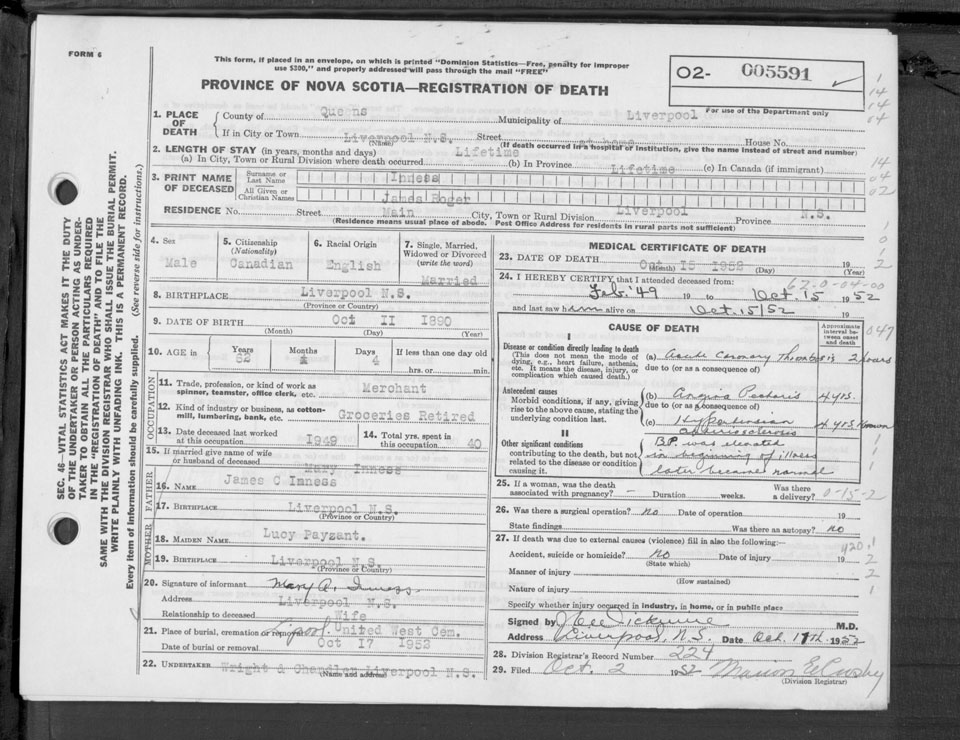 FORM 6
This form, if placed in an envelope, on which is printed "Dominion Statistics—Free, penalty for improper
use $300," and properly addressed will pass through the mail "FREE"
PROVINCE OF NOVA SCOTIA—REGISTRATION OF DEATH
O2- 005591
For use of the Department only
1. PLACE OF DEATH
County of Queens Municipality of Liverpool
If in City or Town Liverpool N.S. Street at home House No.
(Name) (If death occurred in a hospital or institution, give the name instead of street and number)
2. LENGTH OF STAY (in years, months and days)
(a) In City, Town or Rural Division where death occurred Lifetime (b) In Province Lifetime (c) In Canada (if immigrant)
3. PRINT NAME OF DECEASED
Surname or Last Name Inness
All Given or Christian Names James Roger
RESIDENCE No. Street Main City, Town or Rural Division Liverpool Province N.S.
(Residence means usual place of abode. Post Office Address for residents in rural parts not sufficient)
4. Sex Male
5. Citizenship (Nationality) Canadian
6. Racial Origin English
7. Single, Married, Widowed or Divorced (write the word) Married
8. BIRTHPLACE Liverpool N.S.
(Province or Country)
9. DATE OF BIRTH Oct 11 1890
(Month) (Day) (Year)
10. AGE in Years 62 Months Days 4 If less than one day old
hrs. or min.
OCCUPATION
11. Trade, profession, or kind of work as
spinner, teamster, office clerk, etc. Merchant
12. Kind of industry or business, as cotton-
mill, lumbering, bank, etc. Groceries Retired
13. Date deceased last worked
at this occupation 1949
14. Total yrs. spent in
this occupation 40
15. If married give name of wife
or husband of deceased Mary Inness
FATHER
16. NAME James C Inness
17. BIRTHPLACE Liverpool N.S.
(Province or Country)
MOTHER
18. MAIDEN NAME Lucy Payzant.
19. BIRTHPLACE Liverpool N.S.
(Province or Country)
20. Signature of informant Mary A. Inness
Address Liverpool N.S.
Relationship to deceased Wife
21. Place of burial, cremation or removal United West Cem.
Date of burial or removal Oct 17 1952
22. UNDERTAKER Wright & Chandler Liverpool N.S.
(Name and address)
MEDICAL CERTIFICATE OF DEATH
23. DATE OF DEATH Oct 15 1952 19
(Month) (Day) (Year)
24. I HEREBY CERTIFY that I attended deceased from:
Feb. '49 19 to Oct. 15 1952
and last saw him alive on Oct. 15/52 19
62-0-04-00
CAUSE OF DEATH
Approximate interval between onset and death
047
I
Disease or condition directly leading to death
(This does not mean the mode of
dying, e.g., heart failure, asthenia,
etc. It means the disease, injury, or
complication which caused death.)
(a) Acute Coronary Thrombosis 2 hours
due to (or as a consequence of)
Antecedent causes
Morbid conditions, if any, giving
rise to the above cause, stating the
underlying condition last.
(b) Angina Pectoris 4 yrs.
due to (or as a consequence of)
(c) 4 yrs. known
II
Other significant conditions
contributing to the death, but not
related to the disease or condition
causing it.
B.P. was elevated
in beginning of illness
later became normal
25. If a woman, was the death
associated with pregnancy? — Duration weeks. Was there
a delivery? 0-15-2
26. Was there a surgical operation? No Date of operation 19
State findings Was there an autopsy? No
27. If death was due to external causes (violence) fill in also the following:
420.1
Accident, suicide or homicide? No Date of injury 19
(State which)
Manner of injury
(How sustained)
Nature of injury
Specify whether injury occurred in industry, in home, or in public place
Signed by M.D.
Address Liverpool, N.S. Date Oct. 17th 1952
28. Division Registrar's Record Number 224
29. Filed Oct. 2 1952
(Division Registrar)
SEC. 46—VITAL STATISTICS ACT MAKES IT THE DUTY
OF THE UNDERTAKER OR PERSON ACTING AS UNDER-
TAKER TO OBTAIN ALL THE PARTICULARS REQUIRED
IN THE "REGISTRATION OF DEATH" AND TO FILE THE
SAME WITH THE DIVISION REGISTRAR WHO SHALL ISSUE THE BURIAL PERMIT.
WRITE PLAINLY WITH UNFADING INK. THIS IS A PERMANENT RECORD.
Every item of information should be carefully supplied. (See reverse side for instructions.)